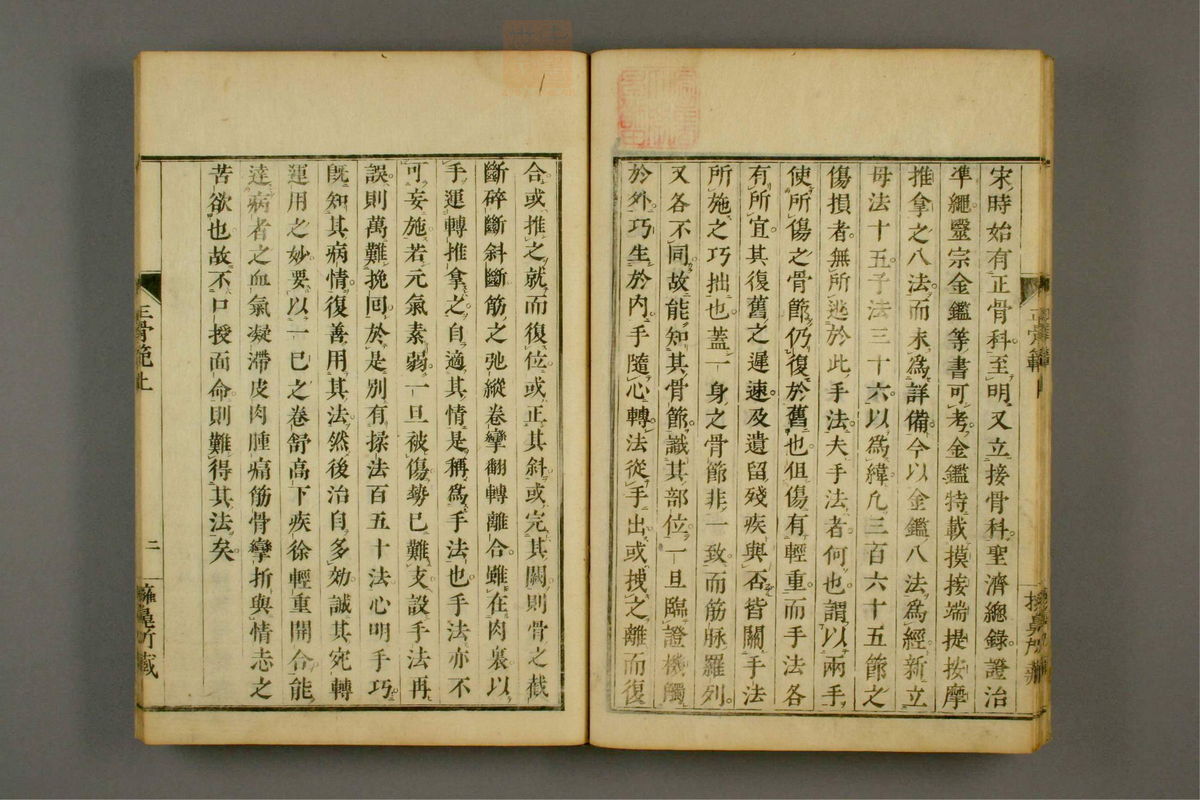 宋時始有正骨科至明又立接骨科聖濟總錄證治
準繩醫宗金鑑等書可考金鑑特載摸按端提按摩
推拿之八法而未為詳備今以金鑑八法為經新立
母法十五子法三十六以為緯凡三百六十五節之
傷損者無所逃於此手法夫手法者何也謂以兩手
使所傷之骨節仍復於舊也但傷有輕重而手法各
有所宜其復舊之遲速及遺留殘疾與否皆關手法
所施之巧拙也蓋一身之骨節非一致而筋脉羅列
又各不同故能知其骨節識其部位一旦臨證機觸
於外巧生於內手隨心轉法從手出或拽之離而復
合或推之就而復位或正其斜或完其闕則骨之截
斷碎斷斜斷筋之弛縱卷攣翻轉離合雖在肉裏以
手運轉推拿之自適其情是稱為手法也手法亦不
可妄施若元氣素弱一旦被傷勢已難支設手法再
誤則萬難挽回於是別有揉法百五十法心明手巧
既知其病情復善用其法然後治自多効誠其宛轉
運用之妙要以一己之卷舒高下疾徐輕重開合能
達病者之血氣凝滯皮肉腫痛筋骨攣折與情志之
苦欲也故不口授面命則難得其法矣
正骨範上
二